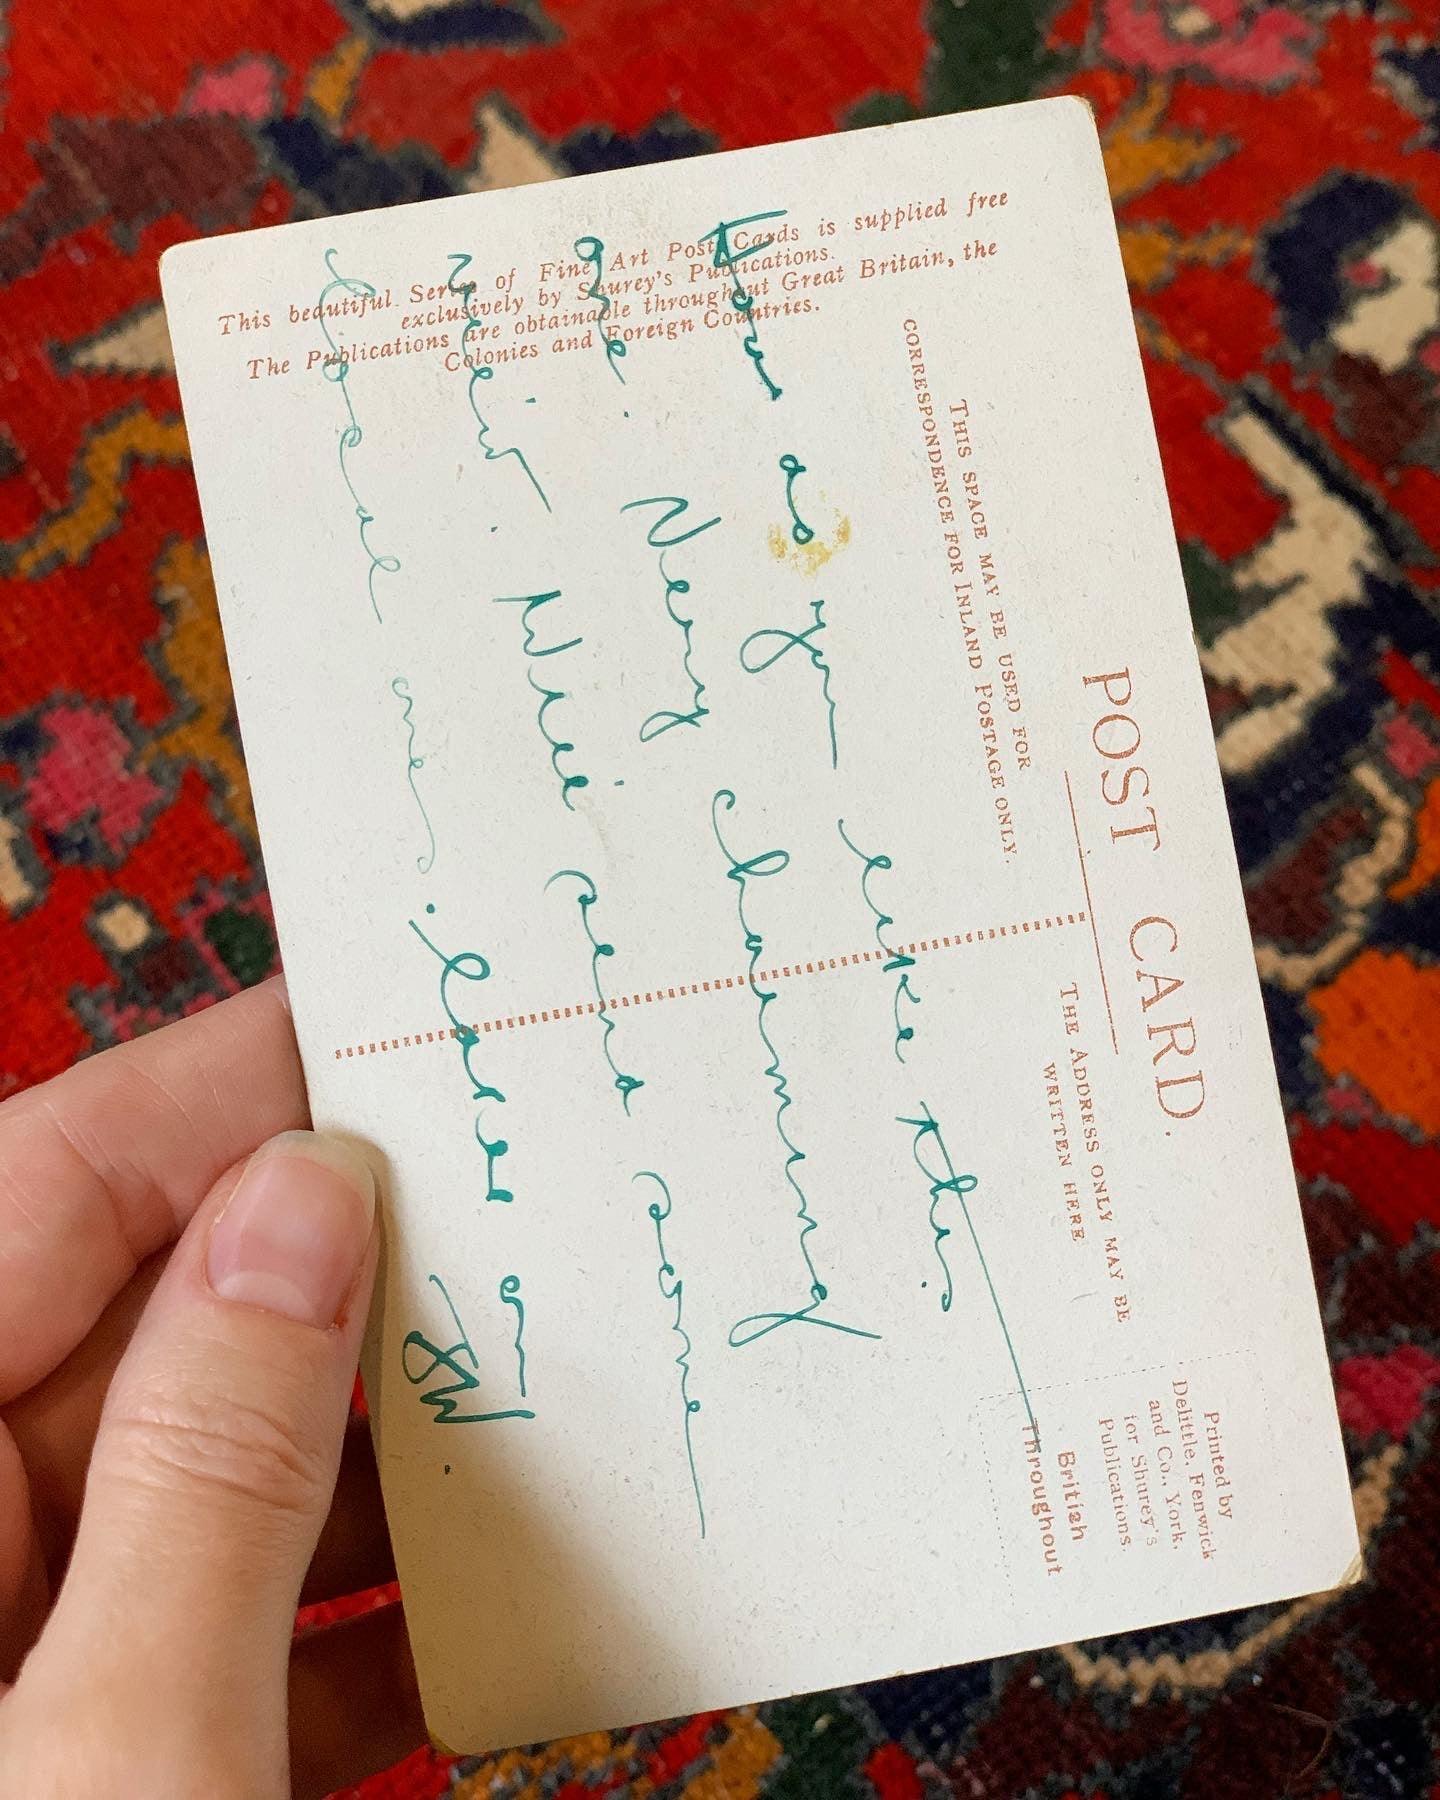 POST CARD.
THIS SPACE MAY BE USED FOR
CORRESPONDENCE FOR INLAND POSTAGE ONLY.
THE ADDRESS ONLY MAY BE
WRITTEN HERE
Printed by
Delittle, Fenwick
and Co., York,
for Shurey's
Publications.
British
Throughout
This beautiful Series of Fine Art Post Cards is supplied free
exclusively by Shurey's Publications.
The Publications are obtainable throughout Great Britain, the
Colonies and Foreign Countries.
How do you like this
one. Very charming
view. Will send some
local ones.
JW.